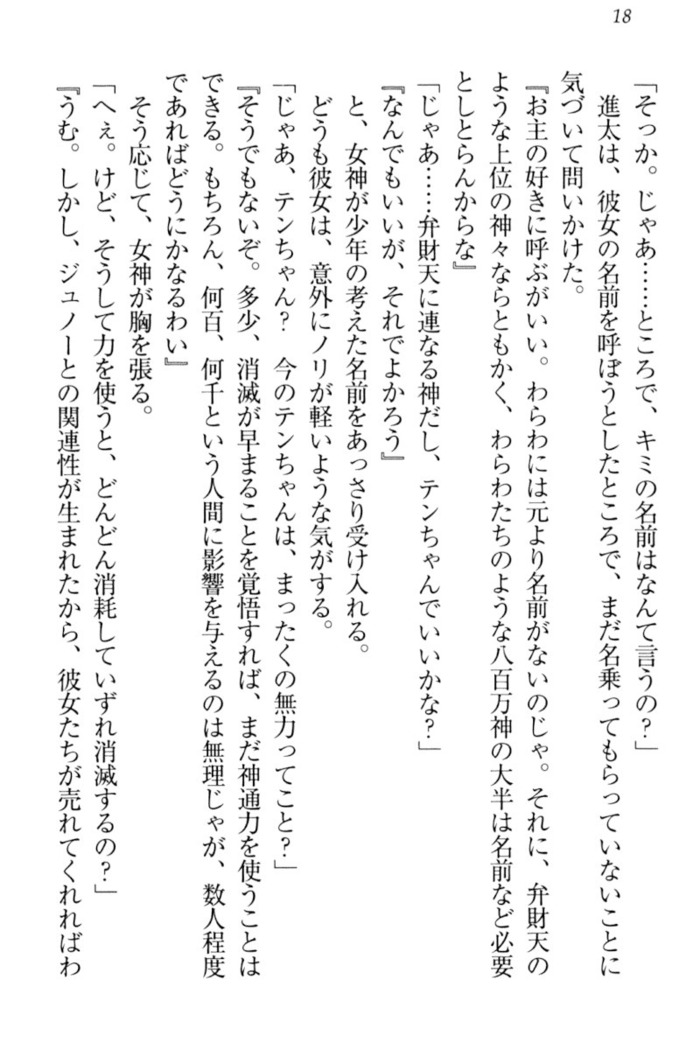 18
「そっか。じゃあ……ところで、キミの名前はなんて言うの？」
進太は、彼女の名前を呼ぼうとしたところで、まだ名乗ってもらっていないことに
気づいて問いかけた。
『お主の好きに呼ぶがいい。わらわには元より名前がないのじゃ。それに、弁財天の
ような上位の神々ならともかく、わらわたちのような八百万神の大半は名前など必要
としとらんからな』
「じゃあ……弁財天に連なる神だし、テンちゃんでいいかな？」
『なんでもいいが、それでよかろう』
と、女神が少年の考えた名前をあっさり受け入れる。
どうも彼女は、意外にノリが軽いような気がする。
「じゃあ、テンちゃん？　今のテンちゃんは、まったくの無力ってこと？」
『そうでもないぞ。多少、消滅が早まることを覚悟すれば、まだ神通力を使うことは
できる。もちろん、何百、何千という人間に影響を与えるのは無理じゃが、数人程度
であればどうにかなるわい』
そう応じて、女神が胸を張る。
「へぇ。けど、そうして力を使うと、どんどん消耗していずれ消滅するの？」
『うむ。しかし、ジュノーとの関連性が生まれたから、彼女たちが売れてくれればわ